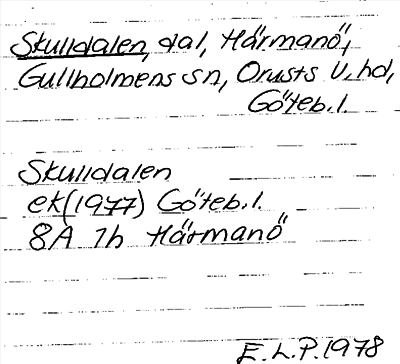 Skulldalen, dal, Härmanö,
Gullholmens sn, Orusts V. hd,
Göteb. l.
Skulldalen
ek (1977) Göteb. l.
8A 7h Härmanö
E. L. P. 1978